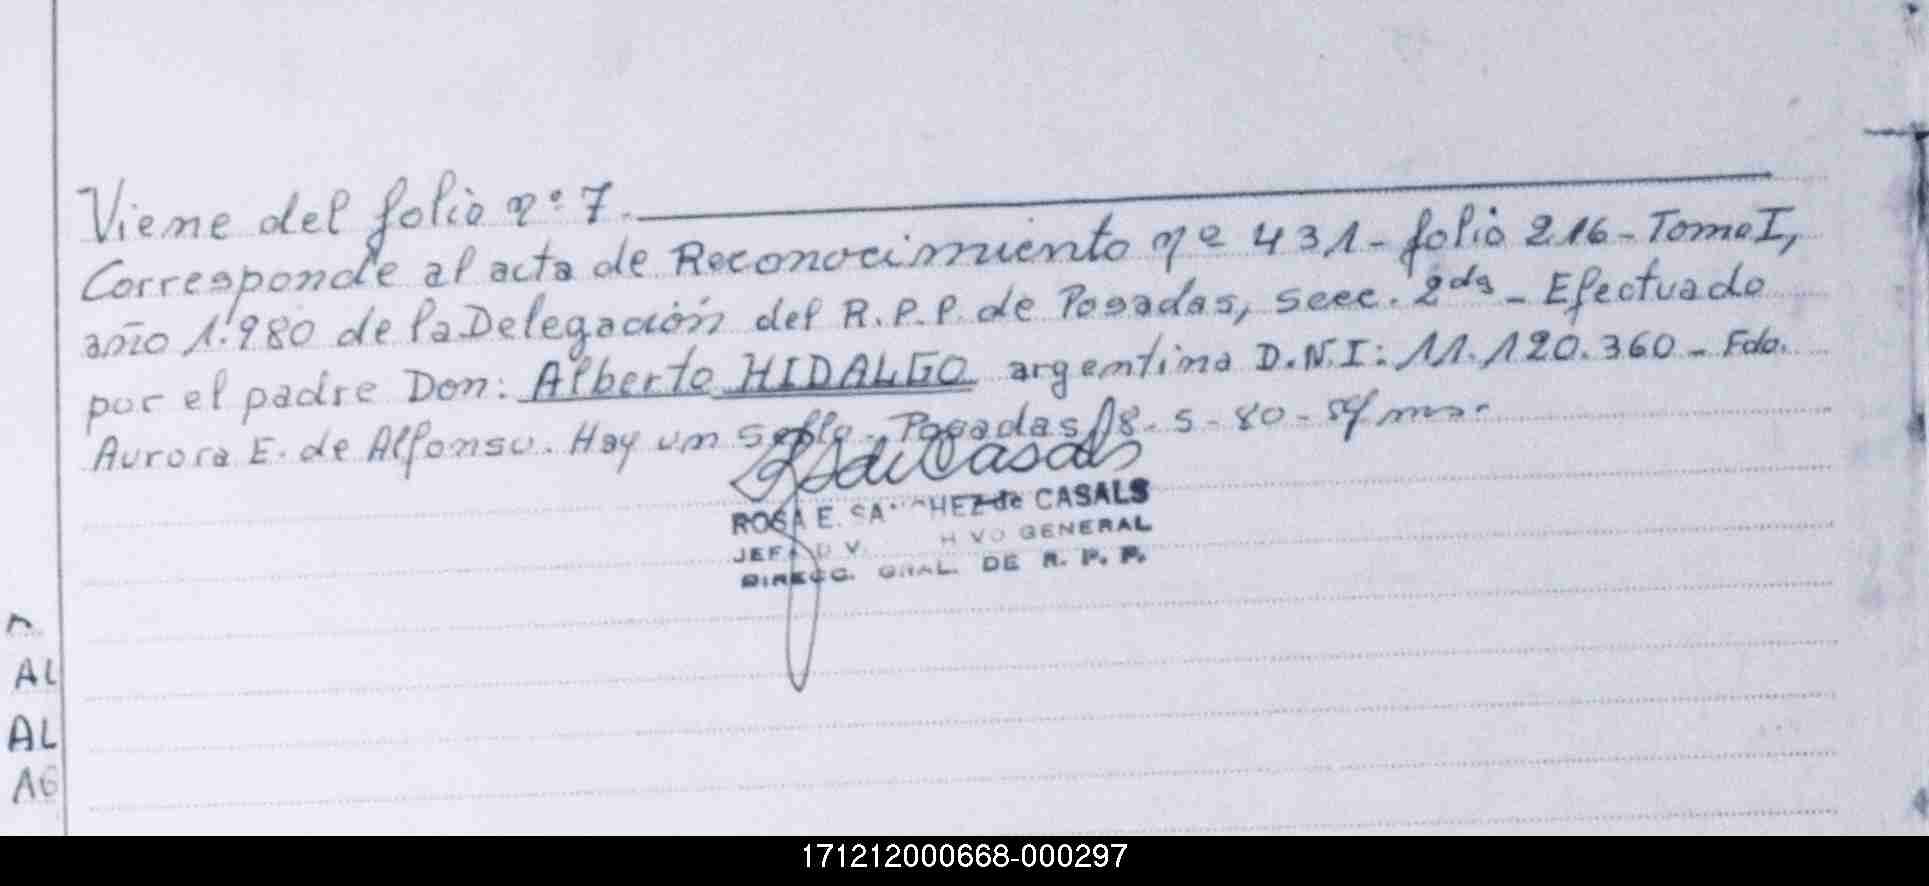 Viene del folio nº 7.
Corresponde al acta de Reconocimiento nº 431- folio 216- Tomo I,
año 1.980 de la Delegación del R.P.P. de Posadas, secc. 2da - Efectuado
por el padre Don: Alberto HIDALGO argentino D.N.I: 11.120.360 - Fdo.
Aurora E. de Alfonso. Hay un sello. Posadas, 8-5-80-
ROSA E. SA HEZ de CASALS
JEF D V H VO GENERAL
DIRECC. GRAL. DE R. P. P.
AL
AL
171212000668-000297